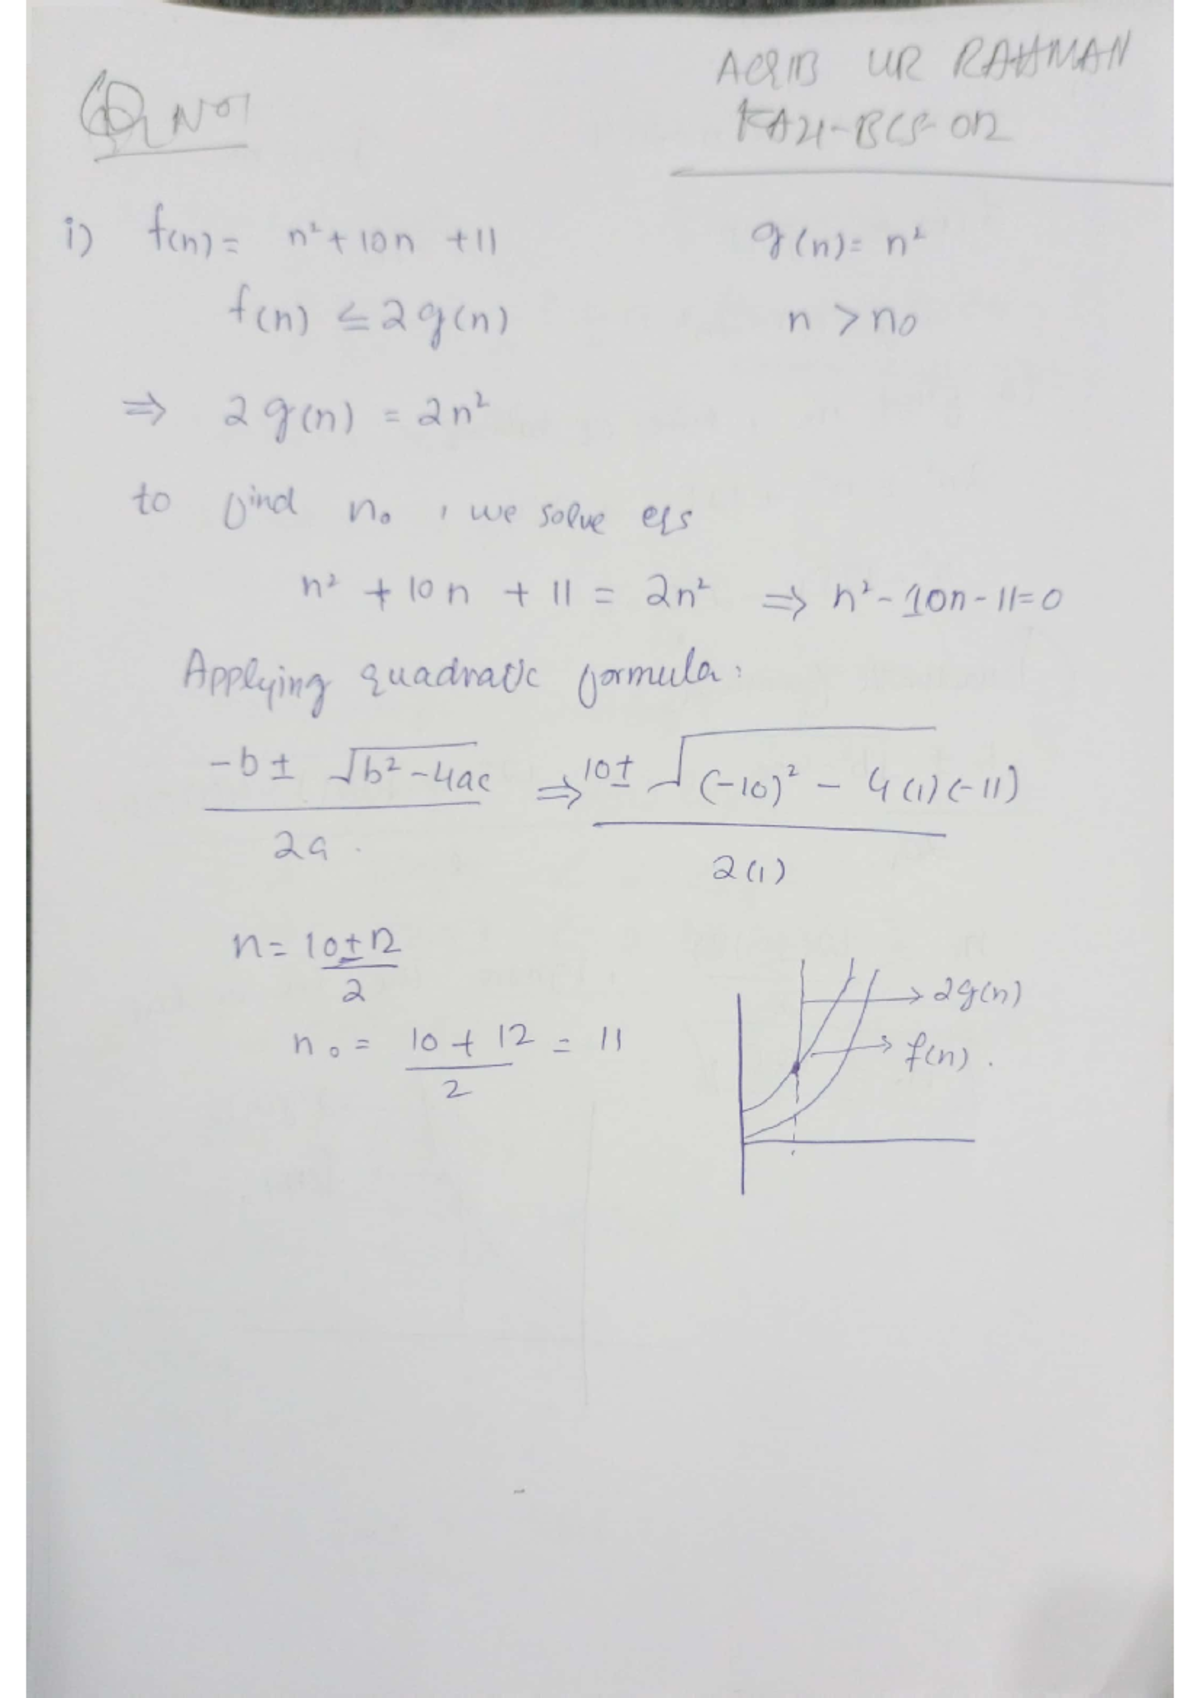 Q No 1
AQIB UR RAHMAN
FA21-BCS-012
i) f(n) = n² + 10n + 11 g(n) = n²
f(n) ≤ 2g(n) n > n₀
⇒ 2g(n) = 2n²
to find n₀, we solve eqs
n² + 10n + 11 = 2n² ⇒ n² - 10n - 11 = 0
Applying quadratic formula:
(-b ± √(b² - 4ac)) / 2a ⇒ (10 ± √((-10)² - 4(1)(-11))) / 2(1)
n = (10 ± 12) / 2
n₀ = (10 + 12) / 2 = 11
2g(n)
f(n).